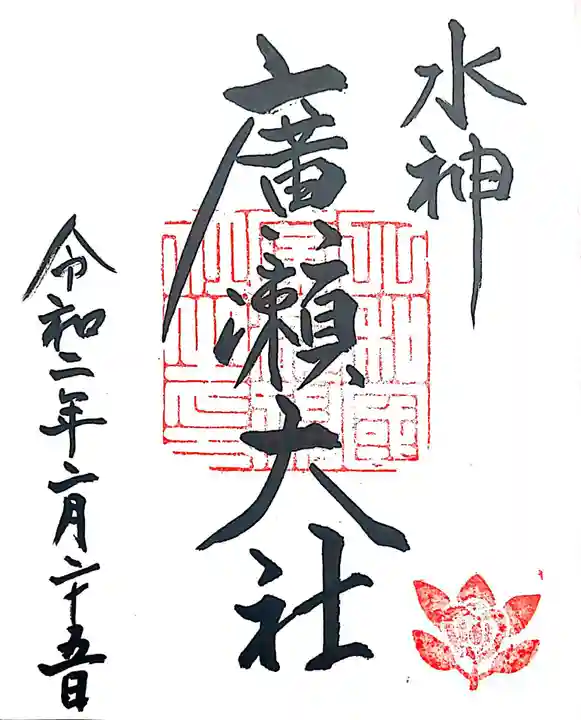 水神
廣瀬大社
令和二年二月二十五日